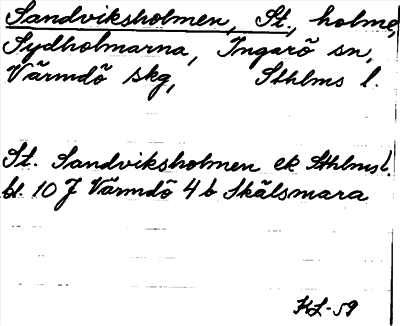 Sandviksholmen, St., holme,
Sydholmarna, Ingarö sn,
Värmdö skg, Sthlms l.
St. Sandviksholmen ek Sthlms l.
bl. 10 J Värmdö 4 b Skälsmara
KL-59